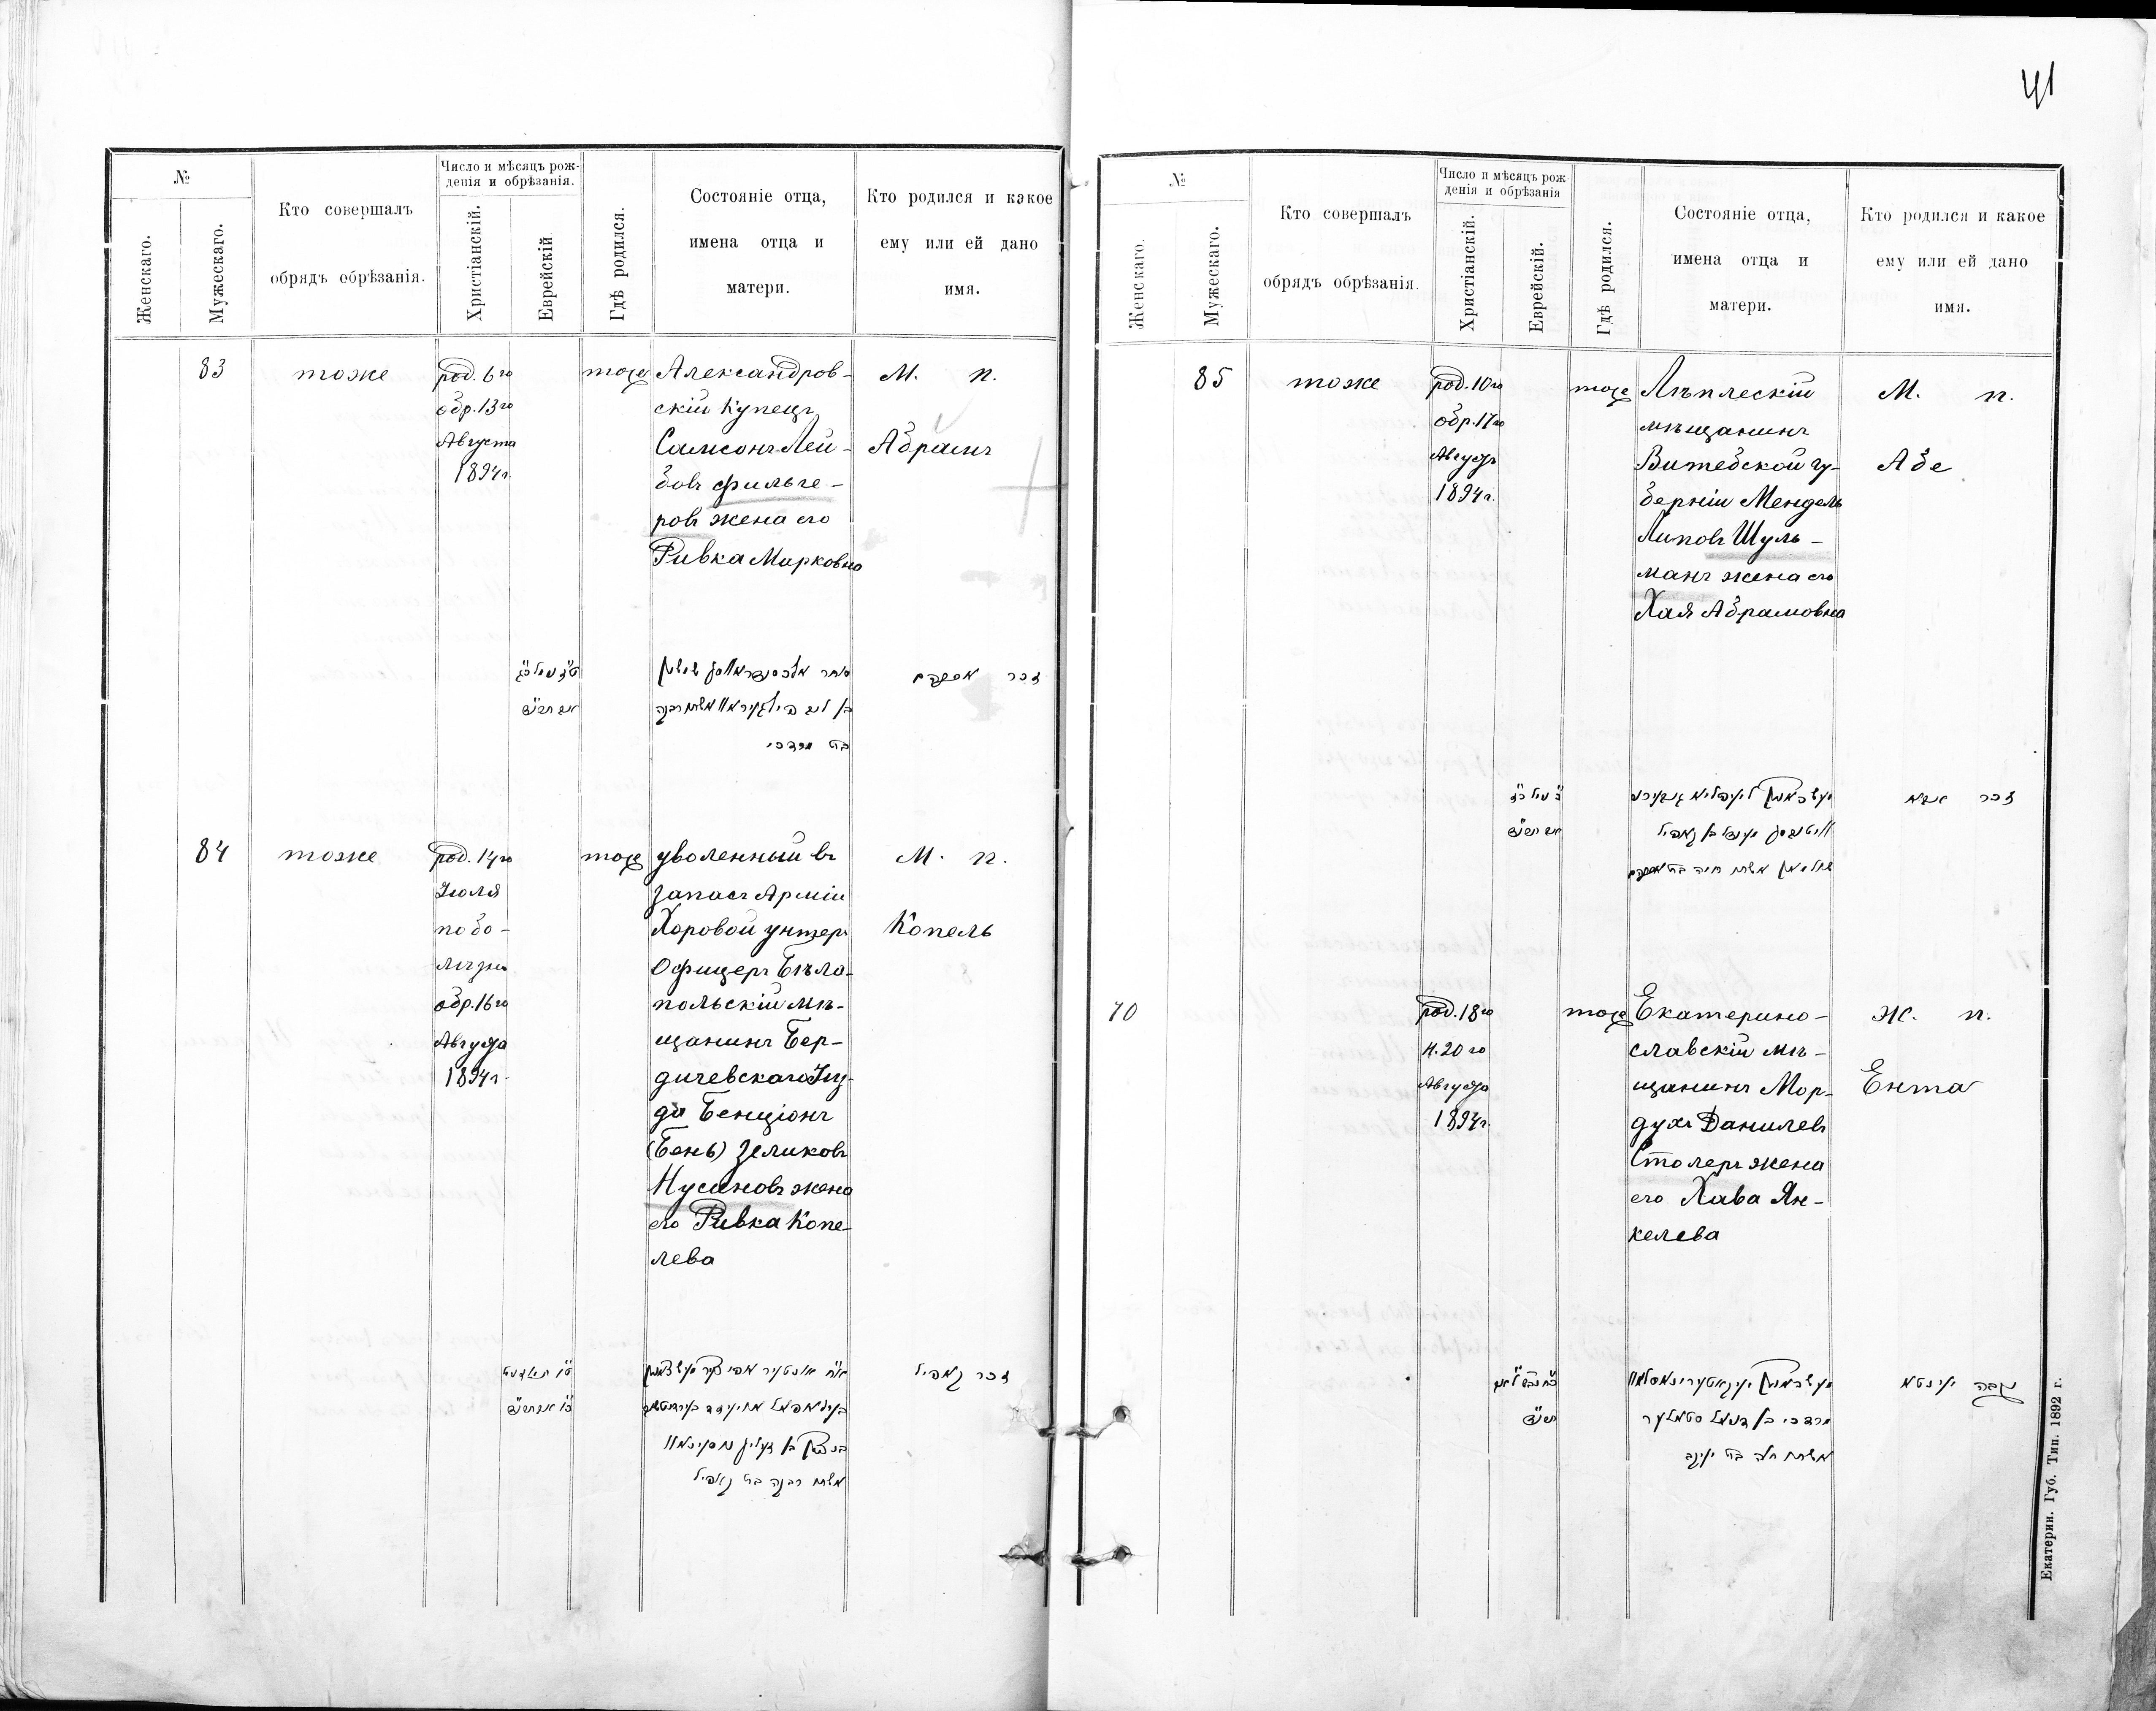 41
№
Женскаго.
Мужескаго.
Кто совершалъ
обрядъ обрѣзанія.
Число и мѣсяцъ рож-
денія и обрѣзанія.
Христіанскій.
Еврейскій
Гдѣ родился.
Состояніе отца,
имена отца и
матери.
Кто родился и какое
ему или ей дано
имя.
83
тоже
род. 6го
обр. 13го
Августа
1894г.
тоже
Александров-
скій Купецъ
Самсонъ Лей-
бовъ Фильге-
ровъ жена его
Ривка Марковна
М. п.
Абрамъ
זכר אברהם
בת מרדכי
84
тоже
род. 14го
Іюля
по бо-
лѣзни
обр. 16го
Августа
1894г.
тоже
уволенный въ
запасъ Арміи
Хоровой унтеръ
Офицеръ Бѣло-
польскій мѣ-
щанинъ Бер-
дичевскаго Уѣз-
да Бенціонъ
(Бень) Зеликовъ
Нусиновъ жена
его Ривка Копе-
лева
М. п.
Копель
זכר קאפיל
אשתו רבקה בת קאפיל
№
Женскаго.
Мужескаго.
Кто совершалъ
обрядъ обрѣзанія.
Число и мѣсяцъ рож-
денія и обрѣзанія
Христіанскій.
Еврейскій.
Гдѣ родился.
Состояніе отца,
имена отца и
матери.
Кто родился и какое
ему или ей дано
имя.
85
тоже
род. 10го
обр. 17го
Августа
1894г.
тоже
Лѣплескій
мѣщанинъ
Витебской гу-
берніи Мендель
Липовъ Шуль-
манъ жена его
Хая Абрамовна
М. п.
Абе
זכר אבא
שולמאן אשתו חיה בת אברהם
70
род. 18го
н. 20го
Августа
1894г.
тоже
Екатерино-
славскій мѣ-
щанинъ Мор-
духъ Данилевъ
Столеръ жена
его Хава Ян-
келева
Ж. п.
Ента
נקבה יענטא
מרדכי בן דניאל סטאלער
אשתו חוה בת יעקב
Екатерин. Губ. Тип. 1892 г.